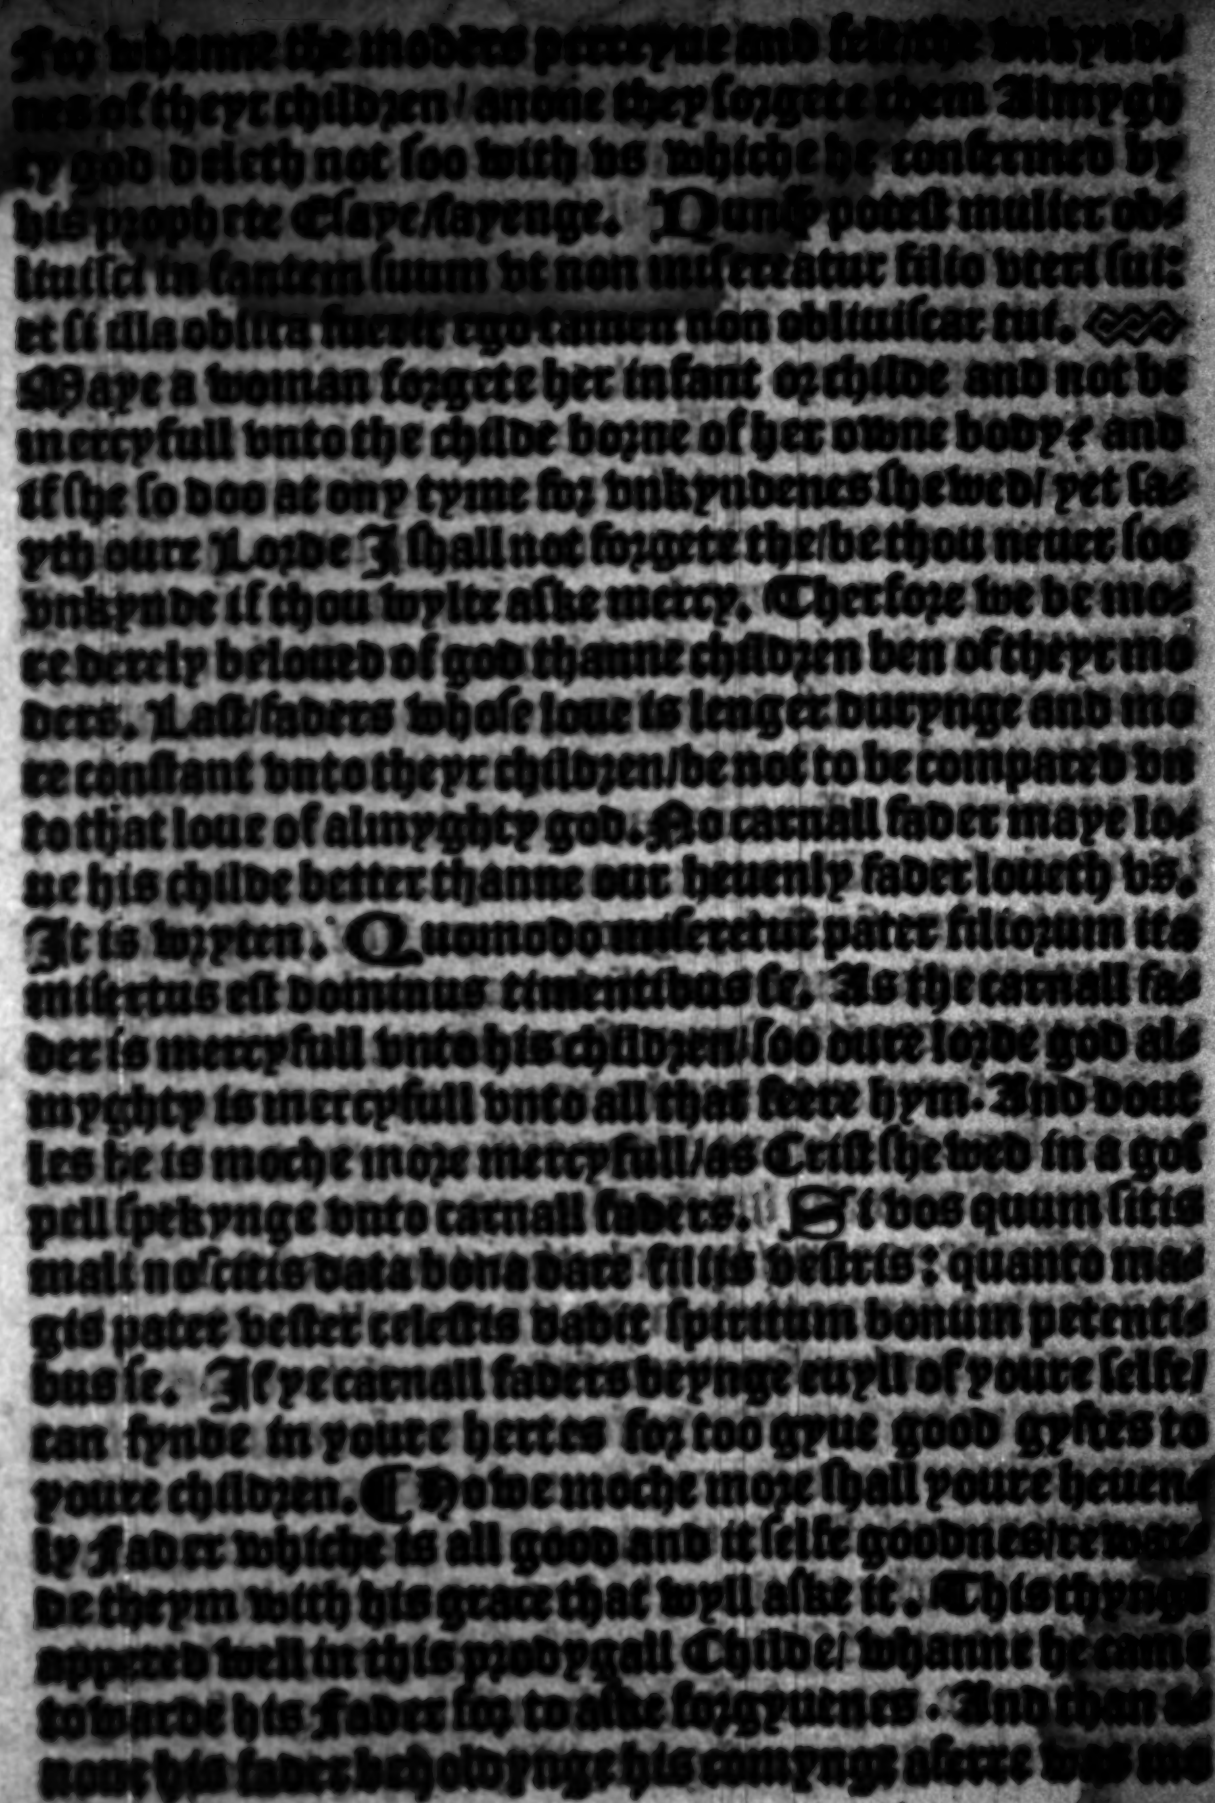 For whanne the moders perceyue and fele the vnkynd⸗
nes of theyr children / anone they forgete them Almygh
ty god deleth not soo with vs whiche he confermed by
his prophete Esaye/sayenge. Nunquid potest mulier ob⸗
liuisci in fantem suum vt non misereatur filio vteri sui:
et si illa oblita fuerit ego tamen non obliuiscar tui.
Maye a woman forgete her infant or childe and not be
mercyfull vnto the childe borne of her owne body? and
if she so doo at ony tyme for vnkyndenes shewed/ yet sa⸗
yth oure Lorde I shall not forgete the/be thou neuer soo
vnkynde if thou wylte aske mercy. Therfore we be mo⸗
re derely beloued of god thanne children ben of theyr mo
ders. Last/faders whose loue is lenger durynge and mo
re constant vnto theyr children/be not to be compared vn
to that loue of almyghty god. No carnall fader maye lo⸗
ue his childe better thanne our heuenly fader loueth vs.
It is wryten. Quomodo miseretur pater filiorum ita
misertus est dominus timentibus se. As the carnall fa⸗
der is mercyfull vnto his children/soo oure lorde god al⸗
myghty is mercyfull vnto all that feere hym. And dout
les he is moche more mercyfull/as Crist shewed in a gos
pell spekynge vnto carnall faders. Si vos quum sitis
mali noscitis data bona dare filiis vestris: quanto ma⸗
gis pater vester celestis dabit spiritum bonum petenti⸗
bus se. If ye carnall faders beynge euyll of youre selfe/
can fynde in youre hertes for too gyue good gyftes to
youre children. ¶ Howe moche more shall youre heuen⸗
ly Fader whiche is all good and it selfe goodnes/rewar⸗
de theym with his grace that wyll aske it. This thynge
appered well in this prodygall Childe/ whanne he came
towarde his Fader for to aske forgyuenes. And than a⸗
none his fader beholdynge his comynge aferre was mo